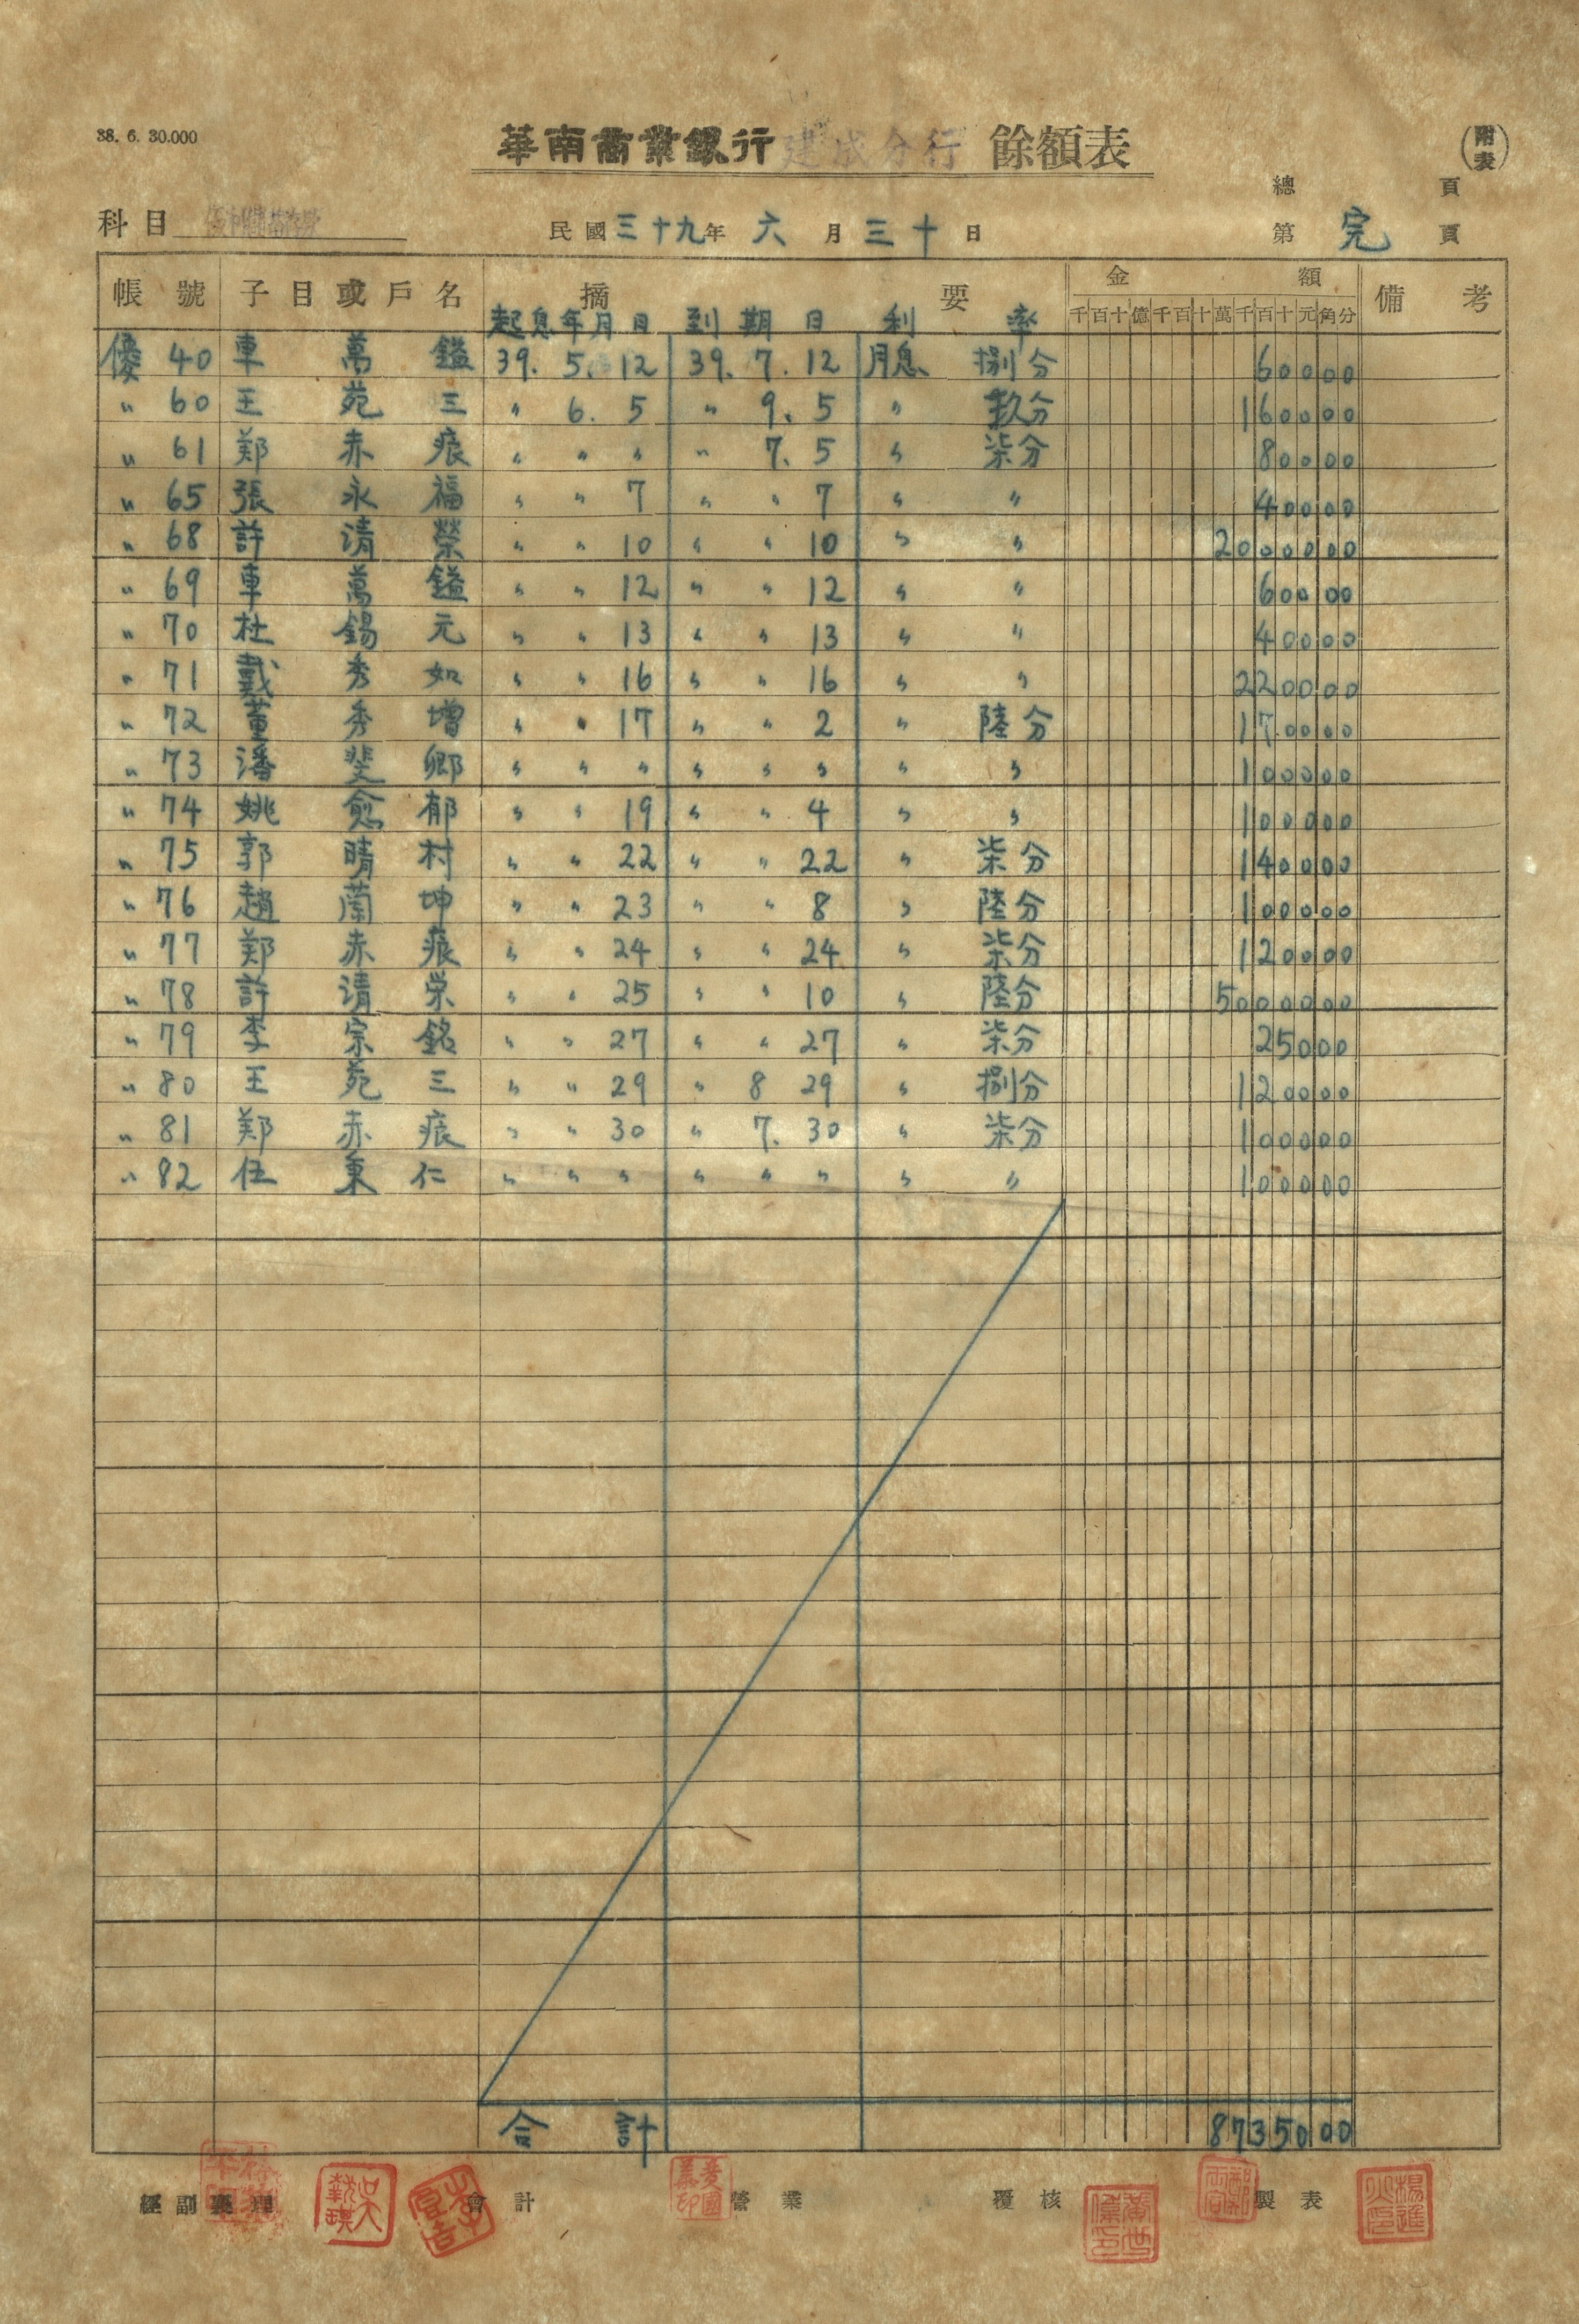 38. 6. 30.000
華南商業銀行建成分行 餘額表
(附表)
總 頁
科目 優利儲蓄存款
民國三十九年 六 月 三十 日
第 完 頁
帳號 子目或戶名 摘要 金額 備考
起息年月日 到期日 利率 千百十億千百十萬千百十元角分
優 40 車萬鎰 39. 5. 12 39. 7. 12 月息 捌分 60000
〃 60 王苑三 〃 6. 5 〃 9. 5 〃 玖分 160000
〃 61 鄭赤痕 〃 〃 〃 〃 7. 5 〃 柒分 80000
〃 65 張永福 〃 〃 7 〃 〃 7 〃 〃 40000
〃 68 許清榮 〃 〃 10 〃 〃 10 〃 〃 2000000
〃 69 車萬鎰 〃 〃 12 〃 〃 12 〃 〃 60000
〃 70 杜錫元 〃 〃 13 〃 〃 13 〃 〃 40000
〃 71 戴秀如 〃 〃 16 〃 〃 16 〃 〃 220000
〃 72 董秀增 〃 〃 17 〃 〃 2 〃 陸分 170000
〃 73 潘斐鄉 〃 〃 〃 〃 〃 〃 〃 〃 100000
〃 74 姚愈郁 〃 〃 19 〃 〃 4 〃 〃 100000
〃 75 郭晴村 〃 〃 22 〃 〃 22 〃 柒分 140000
〃 76 趙蘭坤 〃 〃 23 〃 〃 8 〃 陸分 100000
〃 77 鄭赤痕 〃 〃 24 〃 〃 24 〃 柒分 120000
〃 78 許清栄 〃 〃 25 〃 〃 10 〃 陸分 5000000
〃 79 李宗銘 〃 〃 27 〃 〃 27 〃 柒分 25000
〃 80 王苑三 〃 〃 29 〃 8 29 〃 捌分 120000
〃 81 鄭赤痕 〃 〃 30 〃 7. 30 〃 柒分 100000
〃 82 伍秉仁 〃 〃 〃 〃 〃 〃 〃 〃 100000
合計 8735000
經副襄理 會計 營業 覆核 製表